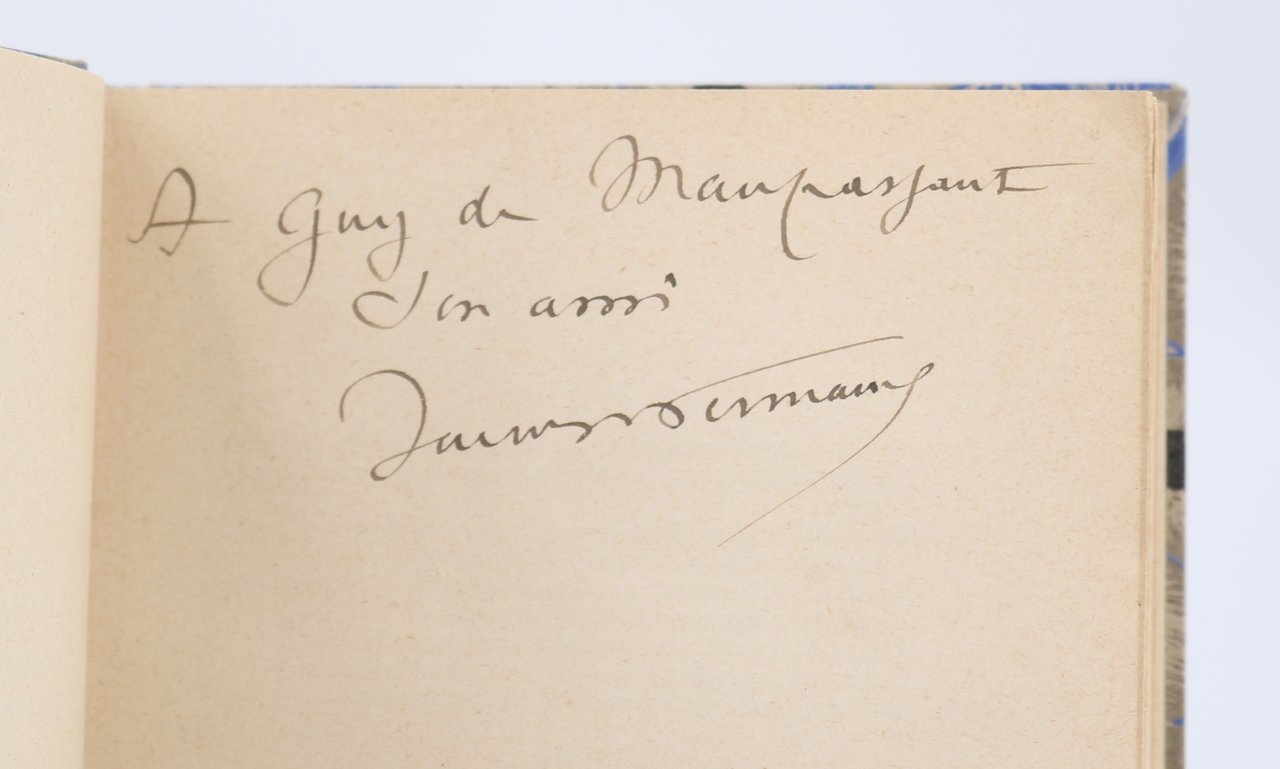 A Guy de Maupassant
Son ami
Jacques Normand